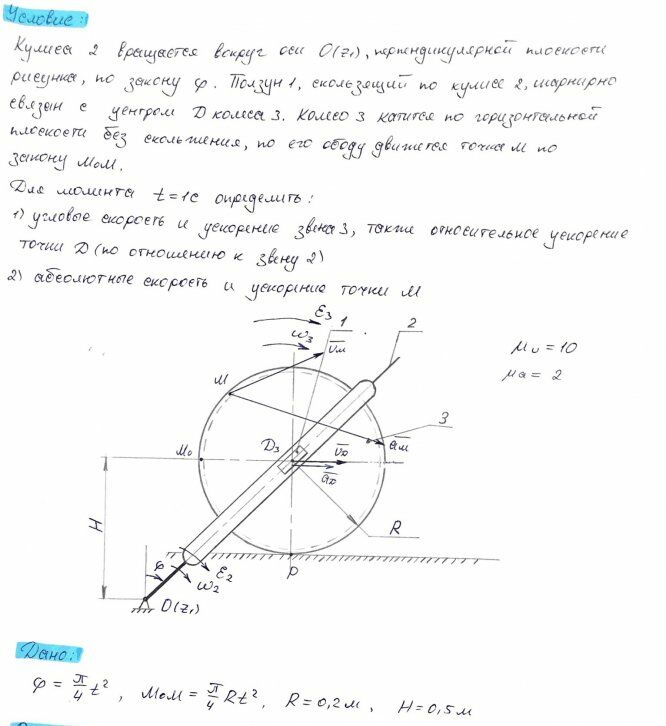 Условие:
Кулиса 2 вращается вокруг оси O(z₁), перпендикулярной плоскости
рисунка, по закону φ. Ползун 1, скользящий по кулисе 2, шарнирно
связан с центром D колеса 3. Колесо 3 катится по горизонтальной
плоскости без скольжения, по его ободу движется точка M по
закону MoM.
Для момента t=1c определить:
1) угловые скорость и ускорение звена 3, также относительное ускорение
точки D (по отношению к звену 2)
2) абсолютные скорость и ускорение точки M
ε₃
ω₃
1
2
v̅м
μv = 10
μa = 2
M
3
a̅м
Mo
D₃
v̅D
a̅D
H
R
φ
ε₂
ω₂
P
O(z₁)
Дано:
φ = π/4 t², MoM = π/4 Rt², R = 0,2м, H = 0,5м